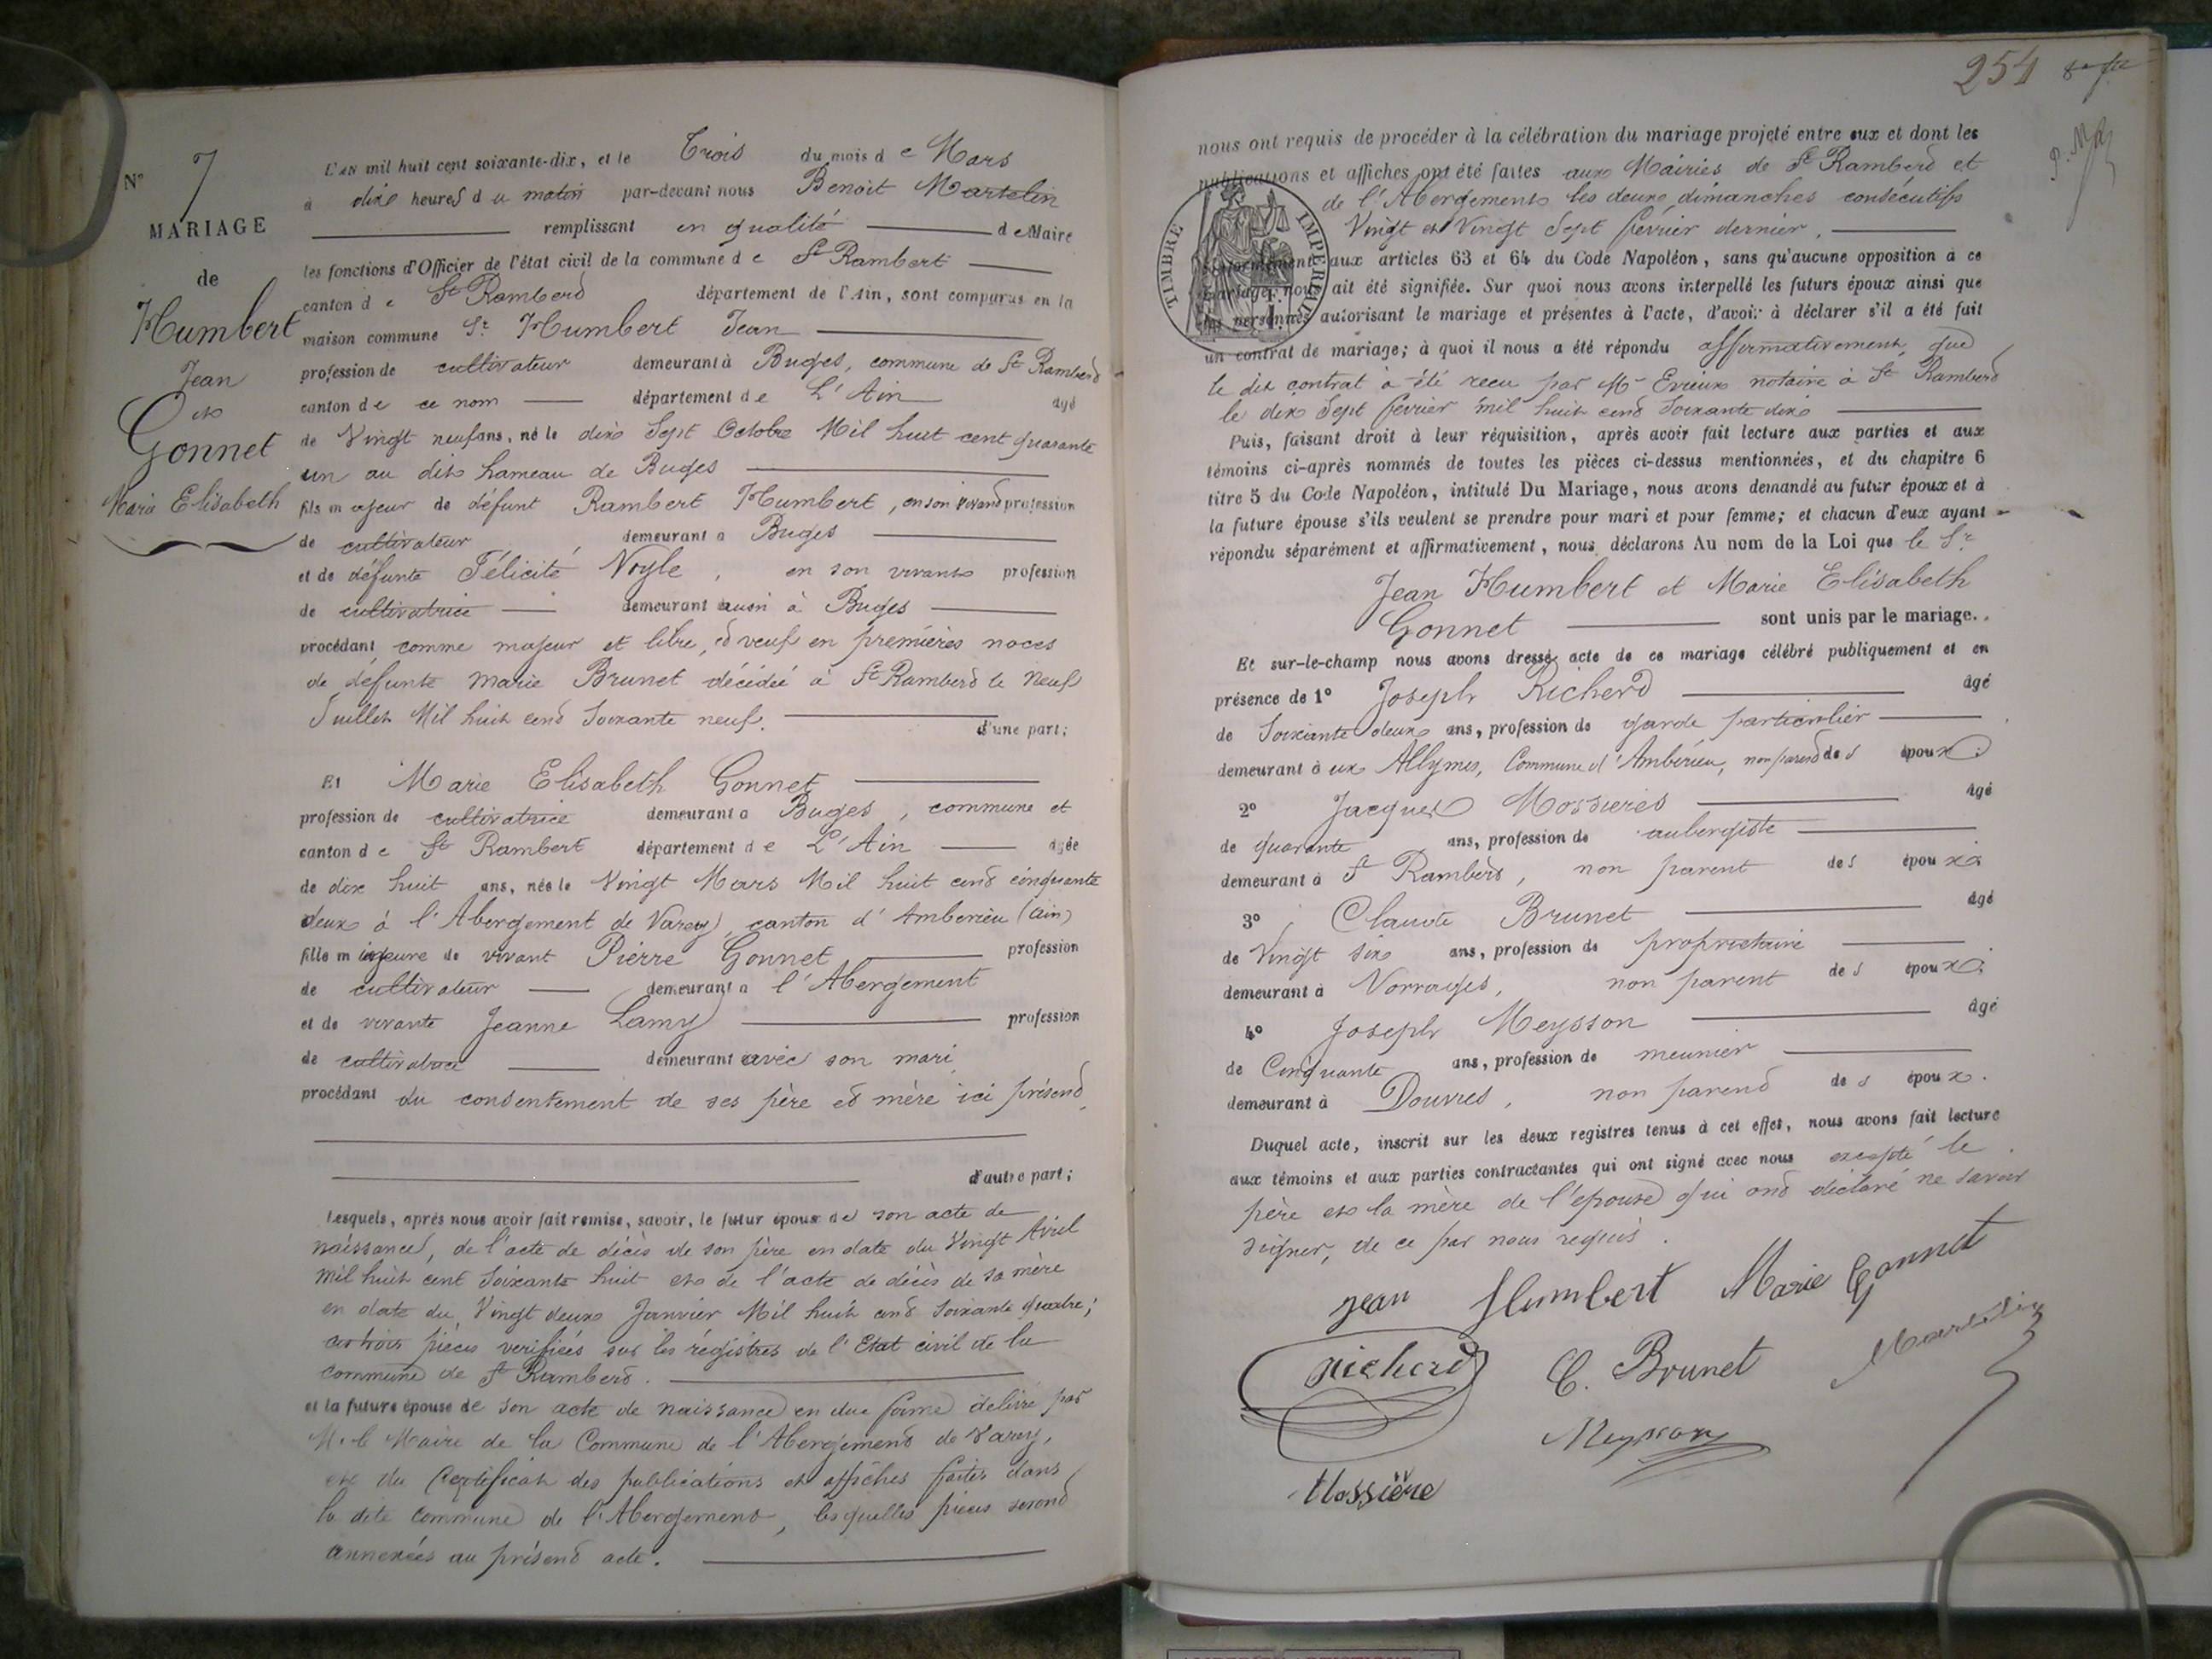 N° 7
MARIAGE
de
Humbert
Jean
et
Gonnet
Marie Elisabeth
L'AN mil huit cent soixante-dix, et le Trois du mois de Mars
à dix heures du matin par-devant nous Benoit Martelin
remplissant en qualité de Maire
les fonctions d'Officier de l'état civil de la commune de St Rambert
canton de St Rambert département de l'Ain, sont comparus en la
maison commune Sr Humbert Jean
profession de cultivateur demeurant à Buges, commune de St Rambert
canton de ce nom département de L'Ain âgé
de Vingt neuf ans, né le dix Sept Octobre Mil huit cent quarante
un au dit hameau de Buges
fils majeur de défunt Rambert Humbert, en son vivant profession
de cultivateur demeurant à Buges
et de défunte Félicité Noyle, en son vivant profession
de cultivatrice demeurant aussi à Buges
procédant comme majeur et libre, et veuf en premières noces
de défunte Marie Brunet décédée à St Rambert le Neuf
Juillet Mil huit cent Soixante neuf.
d'une part;
Et Marie Elisabeth Gonnet
profession de cultivatrice demeurant à Buges, commune et
canton de St Rambert département de L'Ain âgée
de dix huit ans, née le Vingt Mars Mil huit cent cinquante
deux à l'Abergement de Varey, canton d'Amberieu (ain)
fille mineure de vivant Pierre Gonnet profession
de cultivateur demeurant à l'Abergement
et de vivante Jeanne Lamy profession
de cultivatrice demeurant avec son mari
procédant du consentement de ses père et mère ici présent
d'autre part;
Lesquels, après nous avoir fait remise, savoir, le futur époux de son acte de
naissance, de l'acte de décès de son père en date du Vingt Avril
Mil huit cent Soixante huit et de l'acte de décès de sa mère
en date du Vingt deux Janvier Mil huit cent Soixante quatre;
ces trois pièces verifiées sur les régistres de l'Etat civil de la
commune de St Rambert.
et la future épouse de son acte de naissance en due forme délivré par
M. le Maire de la Commune de l'Abergement de Varey,
et du Certificat des publications et affiches faites dans
la dite commune de l'Abergement, lesquelles pièces seront
annexées au présent acte.
254
nous ont requis de procéder à la célébration du mariage projeté entre eux et dont les
publications et affiches ont été faites aux Mairies de St Rambert et
de l'Abergement les deux dimanches consécutifs
Vingt et Vingt Sept février dernier.
TIMBRE IMPERIAL
conformément aux articles 63 et 64 du Code Napoléon, sans qu'aucune opposition à ce
mariage nous ait été signifiée. Sur quoi nous avons interpellé les futurs époux ainsi que
les personnes autorisant le mariage et présentes à l'acte, d'avoir à déclarer s'il a été fait
un contrat de mariage; à quoi il nous a été répondu affirmativement, que
le dit contrat à été recu par Me Evrieux notaire à St Rambert
le dix Sept février mil huit cent Soixante dix
Puis, faisant droit à leur réquisition, après avoir fait lecture aux parties et aux
témoins ci-après nommés de toutes les pièces ci-dessus mentionnées, et du chapitre 6
titre 5 du Code Napoléon, intitulé Du Mariage, nous avons demandé au futur époux et à
la future épouse s'ils veulent se prendre pour mari et pour femme; et chacun d'eux ayant
répondu séparément et affirmativement, nous déclarons Au nom de la Loi que le Sr
Jean Humbert et Marie Elisabeth
Gonnet sont unis par le mariage.
Et sur-le-champ nous avons dressé acte de ce mariage célébré publiquement et en
présence de 1° Joseph Richerd âgé
de Soixante deux ans, profession de garde particulier
demeurant à ux Allymes, Commune d'Ambérieu, non parent des époux.
2° Jacques Mossieres âgé
de quarante ans, profession de aubergiste
demeurant à St Rambert, non parent des époux.
3° Claude Brunet âgé
de Vingt six ans, profession de propriétaire
demeurant à Vorrages, non parent des époux.
4° Joseph Meysson âgé
de Cinquante ans, profession de meunier
demeurant à Douvres, non parent des époux.
Duquel acte, inscrit sur les deux registres tenus à cet effet, nous avons fait lecture
aux témoins et aux parties contractantes qui ont signé avec nous excepté le
père et la mère de l'épouse qui ont déclaré ne savoir
signer, de ce par nous requis.
jean Humbert Marie Gonnet
richerd C. Brunet Martelin
Meysson
Mossière